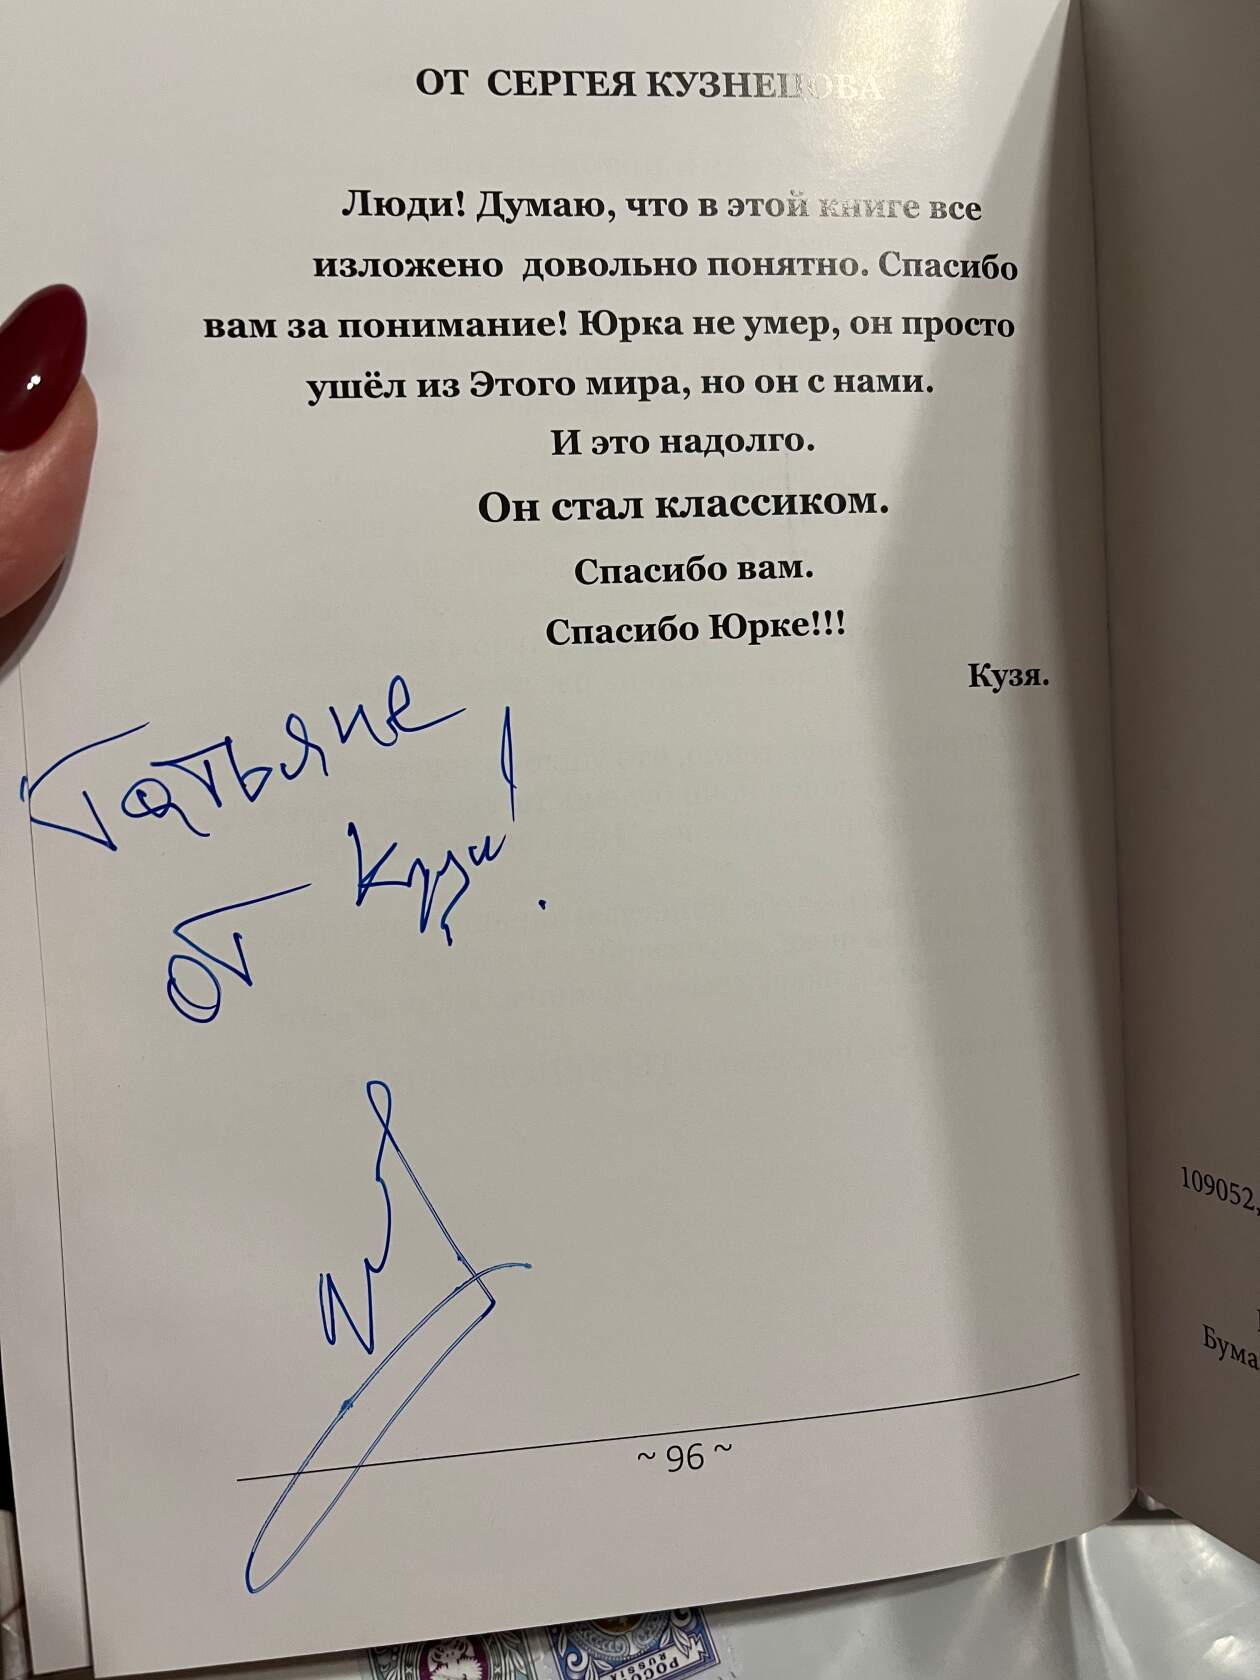 ОТ СЕРГЕЯ КУЗНЕЦОВА
Люди! Думаю, что в этой книге все
изложено довольно понятно. Спасибо
вам за понимание! Юрка не умер, он просто
ушёл из Этого мира, но он с нами.
И это надолго.
Он стал классиком.
Спасибо вам.
Спасибо Юрке!!!
Кузя.
Татьяне
от Кузи!
~ 96 ~
109052,
Бума
РОССИЯ
RUSSIA